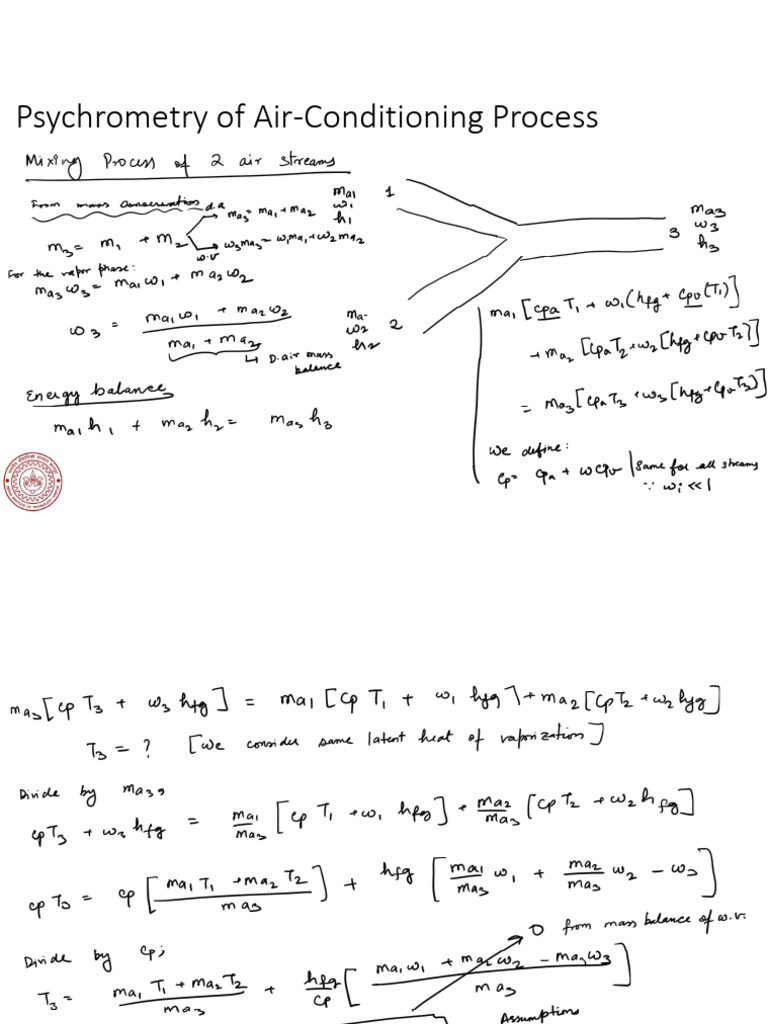 Psychrometry of Air-Conditioning Process
Mixing Process of 2 air streams
From mass conservation d.a
ma3 = ma1 + ma2
m3 = m1 + m2
w3ma3 = w1ma1 + w2ma2
w.v
For the vapor phase:
ma3 w3 = ma1w1 + ma2w2
w3 = ma1w1 + ma2w2
ma1 + ma2
↳ D.air mass
balance
Energy balance
ma1h1 + ma2h2 = ma3h3
ma1
w1
h1
1
ma2
w2
h2
2
3
ma3
w3
h3
ma1[cpaT1 + w1(hfg + cpv(T1)]
+ma2[cpaT2+w2[hfg+cpvT2)]
= ma3[cpaT3+w3[hfg+cpvT3)]
We define:
cp = cpa + wcpv | same for all streams
∵ wi << 1
ma3[cpT3 + w3hfg] = ma1[cpT1 + w1hfg] + ma2[cpT2+w2hfg]
T3 = ? [We consider same latent heat of vaporization]
Divide by ma3,
cpT3 + w3hfg = ma1/ma3 [cpT1 + w1hfg] + ma2/ma3 [cpT2 + w2hfg]
cpT3 = cp[ma1T1 + ma2T2 / ma3] + hfg[ma1/ma3 w1 + ma2/ma3 w2 - w3]
0 from mass balance of w.v.
Divide by cp;
T3 = ma1T1 + ma2T2 / ma3 + hfg/cp [ma1w1 + ma2w2 - ma3w3 / ma3]
Assumptions